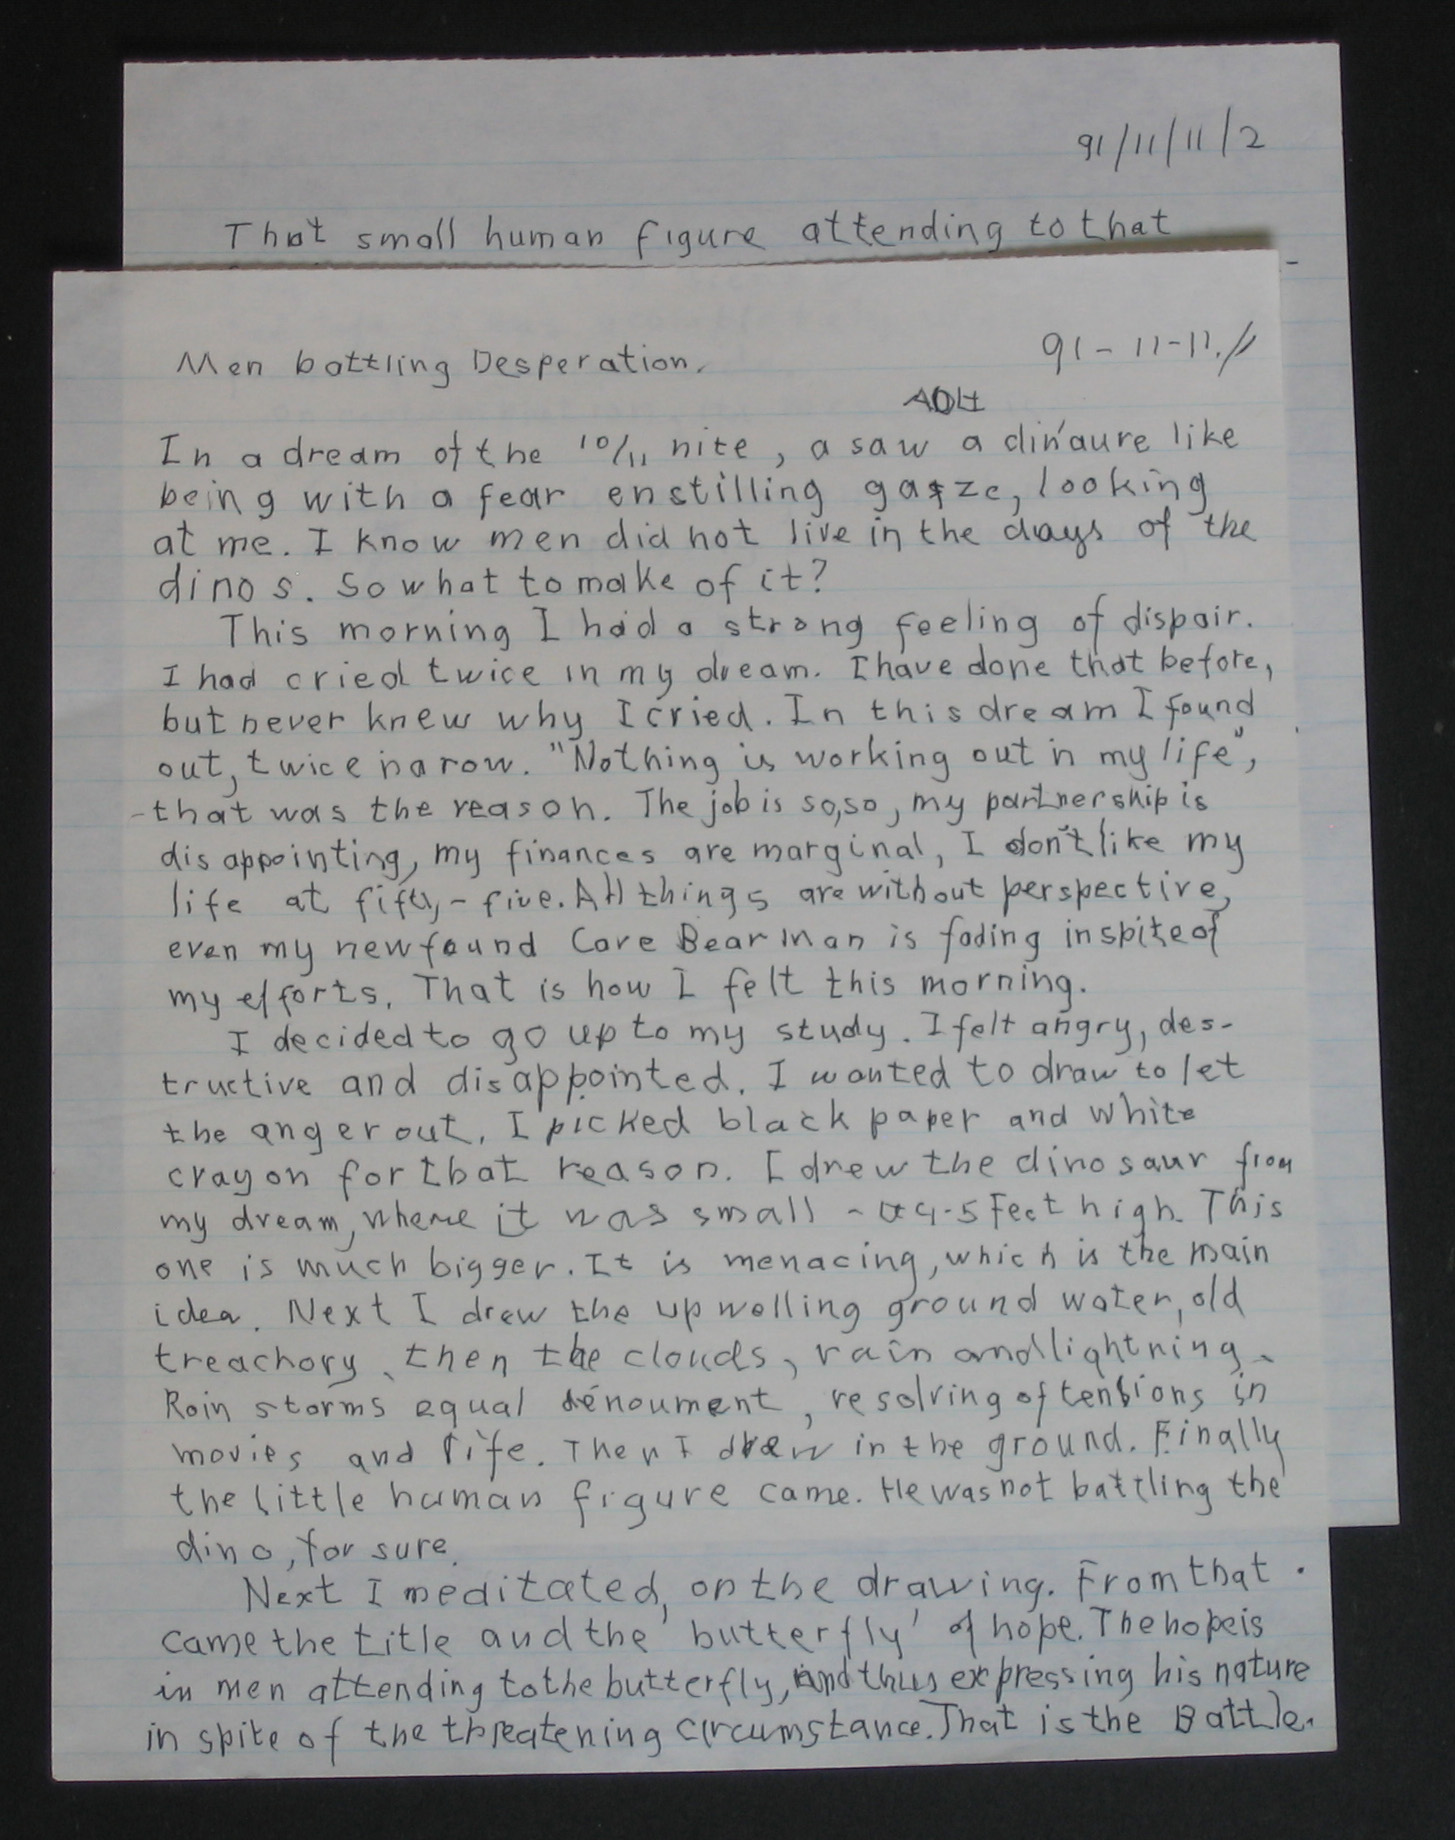 91/11/11/2
That small human figure attending to that
91-11-11./1
Men battling Desperation.
In a dream of the 10/11 nite, a saw a din'aure like
being with a fear enstilling gaze, looking
at me. I know men did not live in the days of the
dinos. So what to make of it?
This morning I had a strong feeling of dispair.
I had cried twice in my dream. I have done that before,
but never knew why I cried. In this dream I found
out, twice in a row. "Nothing is working out in my life",
-that was the reason. The job is so,so, my partnership is
disappointing, my finances are marginal, I don't like my
life at fifty-five. All things are without perspective,
even my newfound Care Bear Man is fading inspite of
my efforts. That is how I felt this morning.
I decided to go up to my study. I felt angry, des-
tructive and disappointed. I wanted to draw to let
the anger out. I picked black paper and white
crayon for that reason. I drew the dinosaur from
my dream, where it was small - 4-5 Feet high. This
one is much bigger. It is menacing, which is the main
idea. Next I drew the upwelling ground water, old
treachory, then the clouds, rain and lightning.
Rain storms equal dénoument, resolving of tensions in
movies and life. Then I drew in the ground. Finally
the little human figure came. He was not battling the
dino, for sure.
Next I meditated, on the drawing. From that
came the title and the 'butterfly' of hope. The hope is
in men attending to the butterfly, and thus expressing his nature
in spite of the threatening circumstance. That is the Battle.